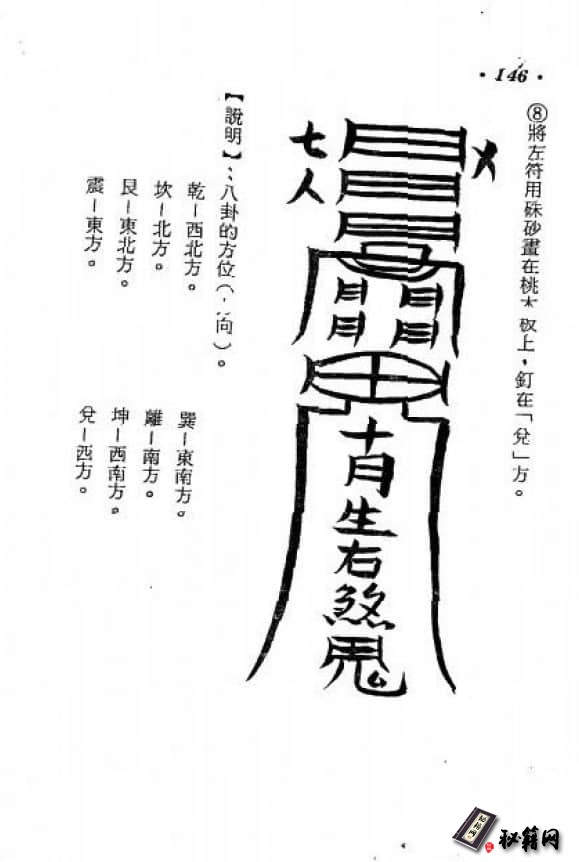 ·146·
⑧將左符用硃砂畫在桃木板上，釘在「兌」方。
大
七人
十月生右煞鬼
【說明】：八卦的方位（方向）。
乾—西北方。
坎—北方。
艮—東北方。
震—東方。
巽—東南方。
離—南方。
坤—西南方。
兌—西方。
秘籍网